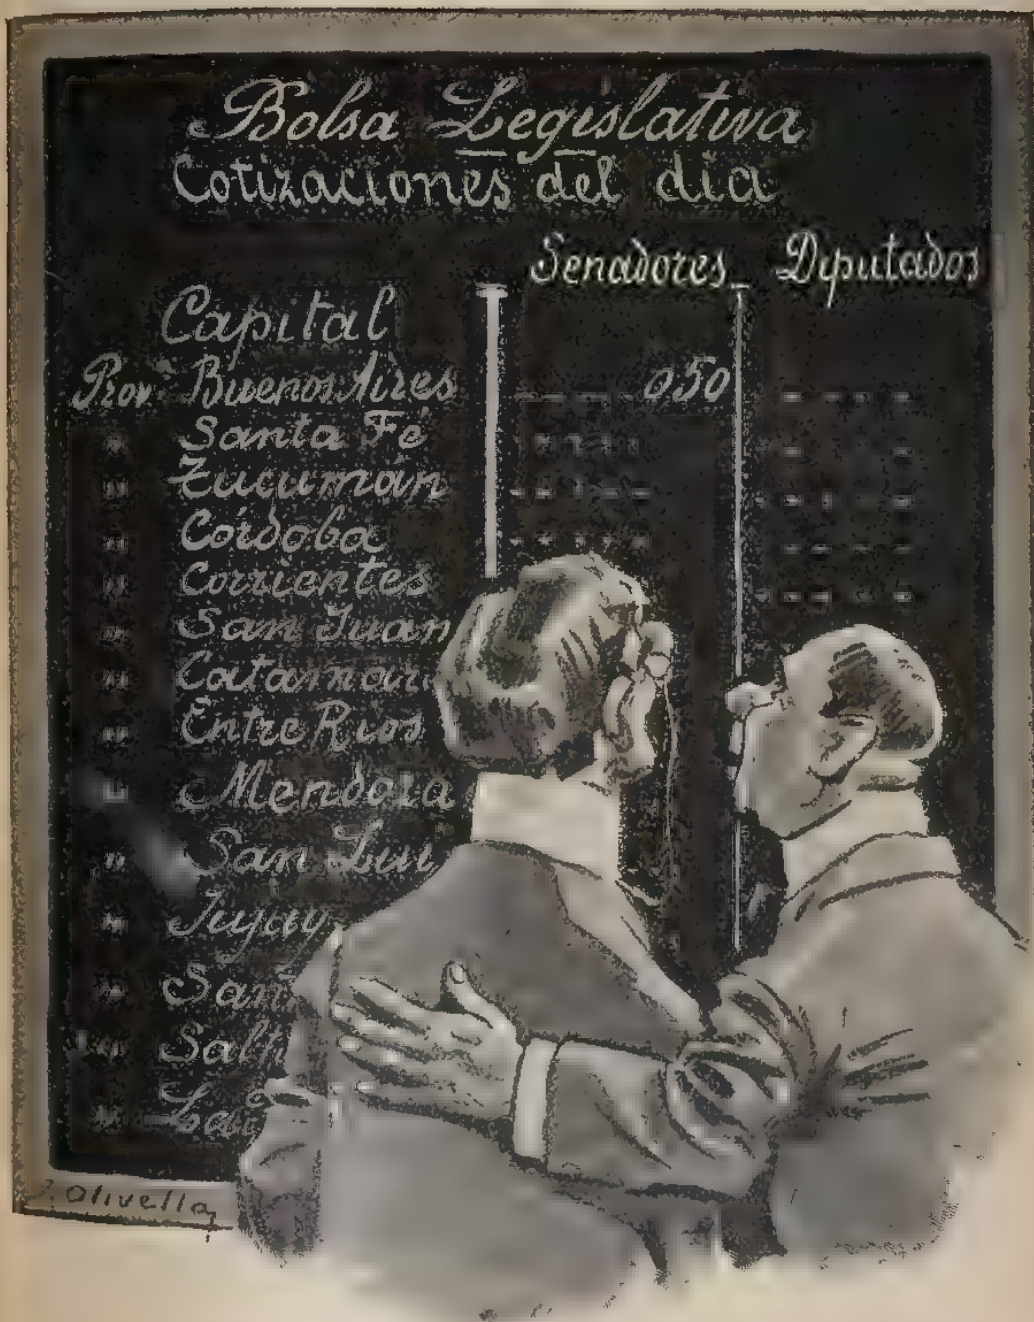 Bolsa Legislativa
Cotizaciones del día
Senadores Diputados
Capital
Prov. Buenos Aires 050
" Santa Fé
" Tucumán
" Córdoba
" Corrientes
" San Juan
" Catamar
" Entre Rios
" Mendoza
" San Lui
" Jujuy
" San
" Salt
"
P. Olivella